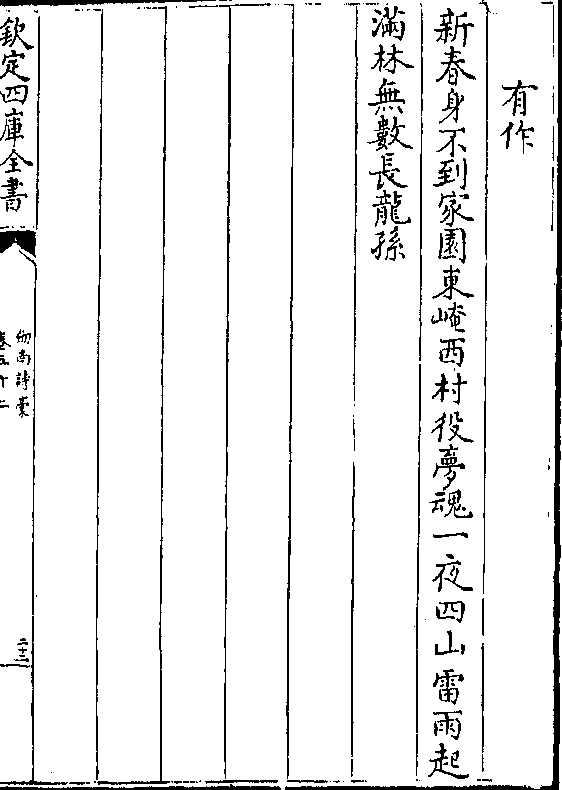 有作
新春身不到家園東崦西村役夢魂一夜四山雷雨起
滿林無數長龍孫
欽定四庫全書
劒南詩稾
卷五十二
二十三